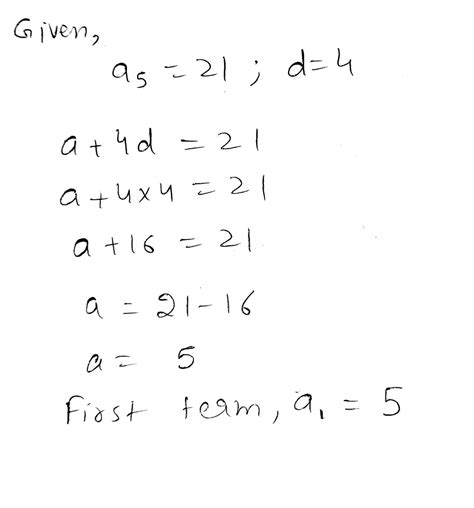 Given,
a₅ = 21 ; d=4
a + 4d = 21
a + 4×4 = 21
a + 16 = 21
a = 21-16
a = 5
First term, a₁ = 5